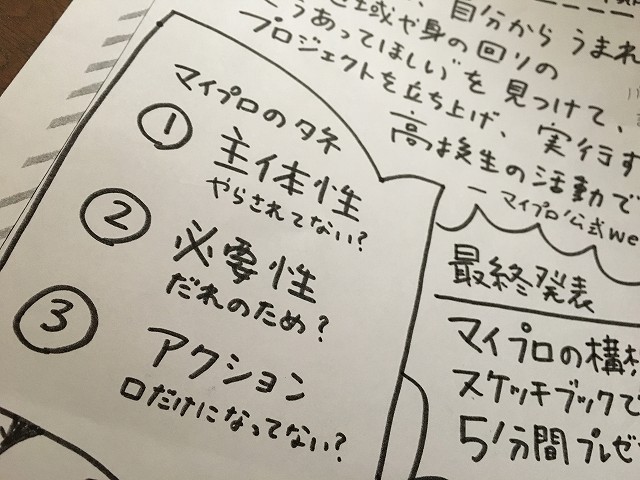 マイプロのタネ
① 主体性
やらされてない?
② 必要性
だれのため?
③ アクション
口だけになってない?
自分から うまれ
域や身の回りの
うあってほしい"を 見つけて、
プロジェクトを立ち上げ、実行す
高校生の活動で
ーマイプロ公式we
最終発表
マイプロの構
スケッチブックで
5分間プレゼ